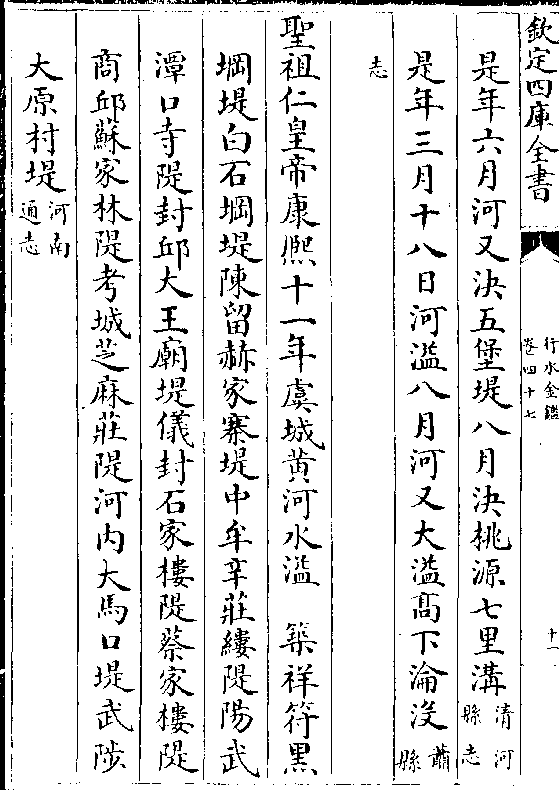 欽定四庫全書
行水金鑑
卷四十七
十一
是年六月河又決五堡堤八月決桃源七里溝清河縣志
是年三月十八日河溢八月河又大溢高下淪没蕭縣
志
聖祖仁皇帝康熙十一年虞城黄河水溢　築祥符黒
堽堤白石堽堤陳留赫家寨堤中牟辛莊縷隄陽武
潭口寺隄封邱大王廟堤儀封石家樓隄蔡家樓隄
商邱蘇家林隄考城芝麻莊隄河内大馬口堤武陟
大原村堤河南通志